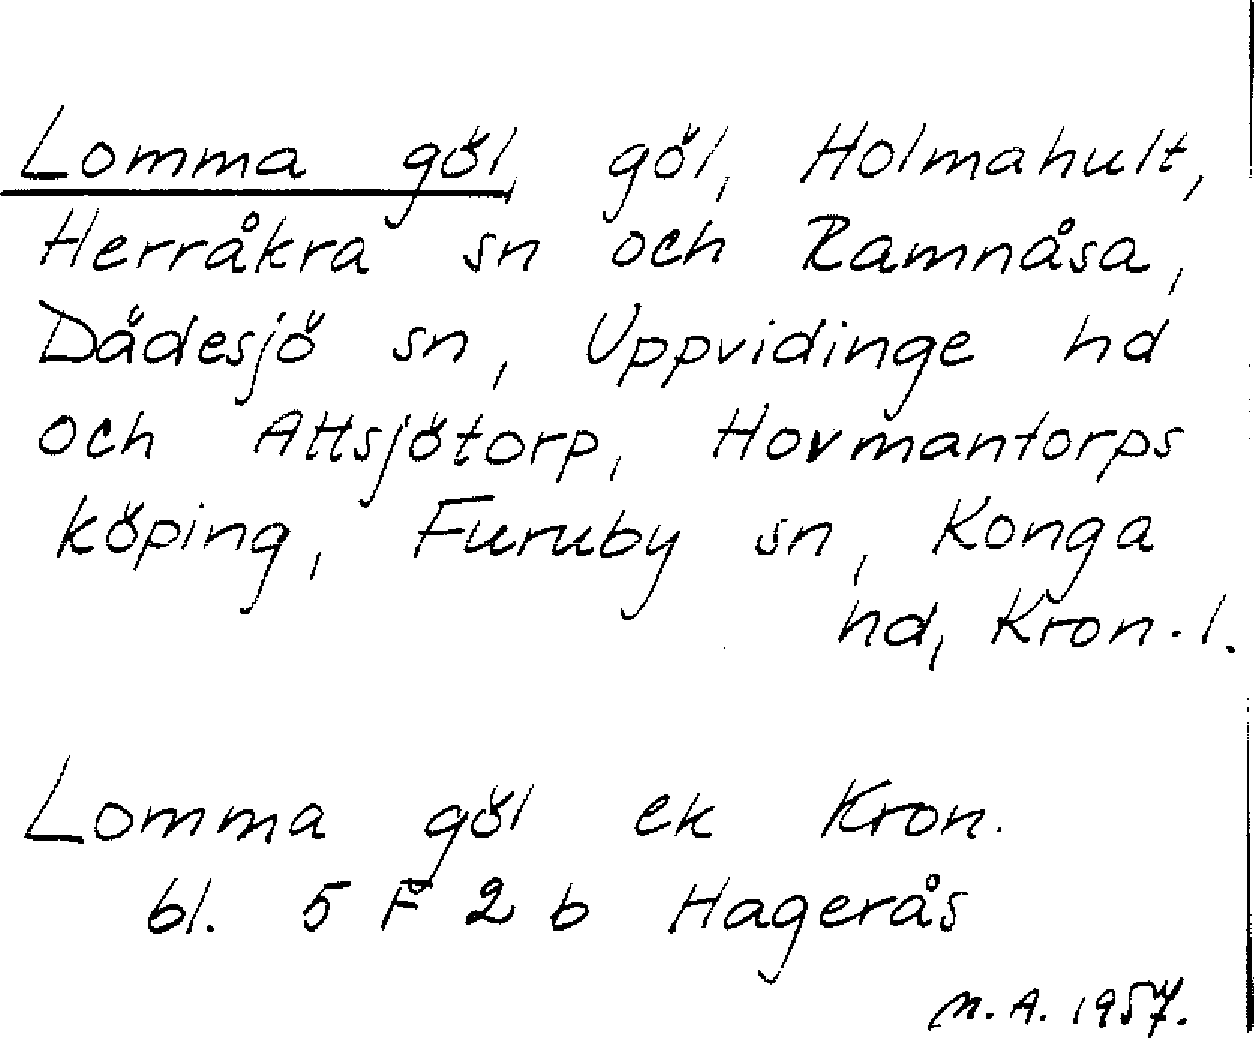 Lomma göl, göl, Holmahult,
Herråkra sn och Ramnåsa,
Dädesjö sn, Uppvidinge hd
och Attsjötorp, Hovmantorps
köping, Furuby sn, Konga
hd, Kron. l.
Lomma göl ek Kron.
bl. 5 F 2 b Hagerås
M. A. 1957.